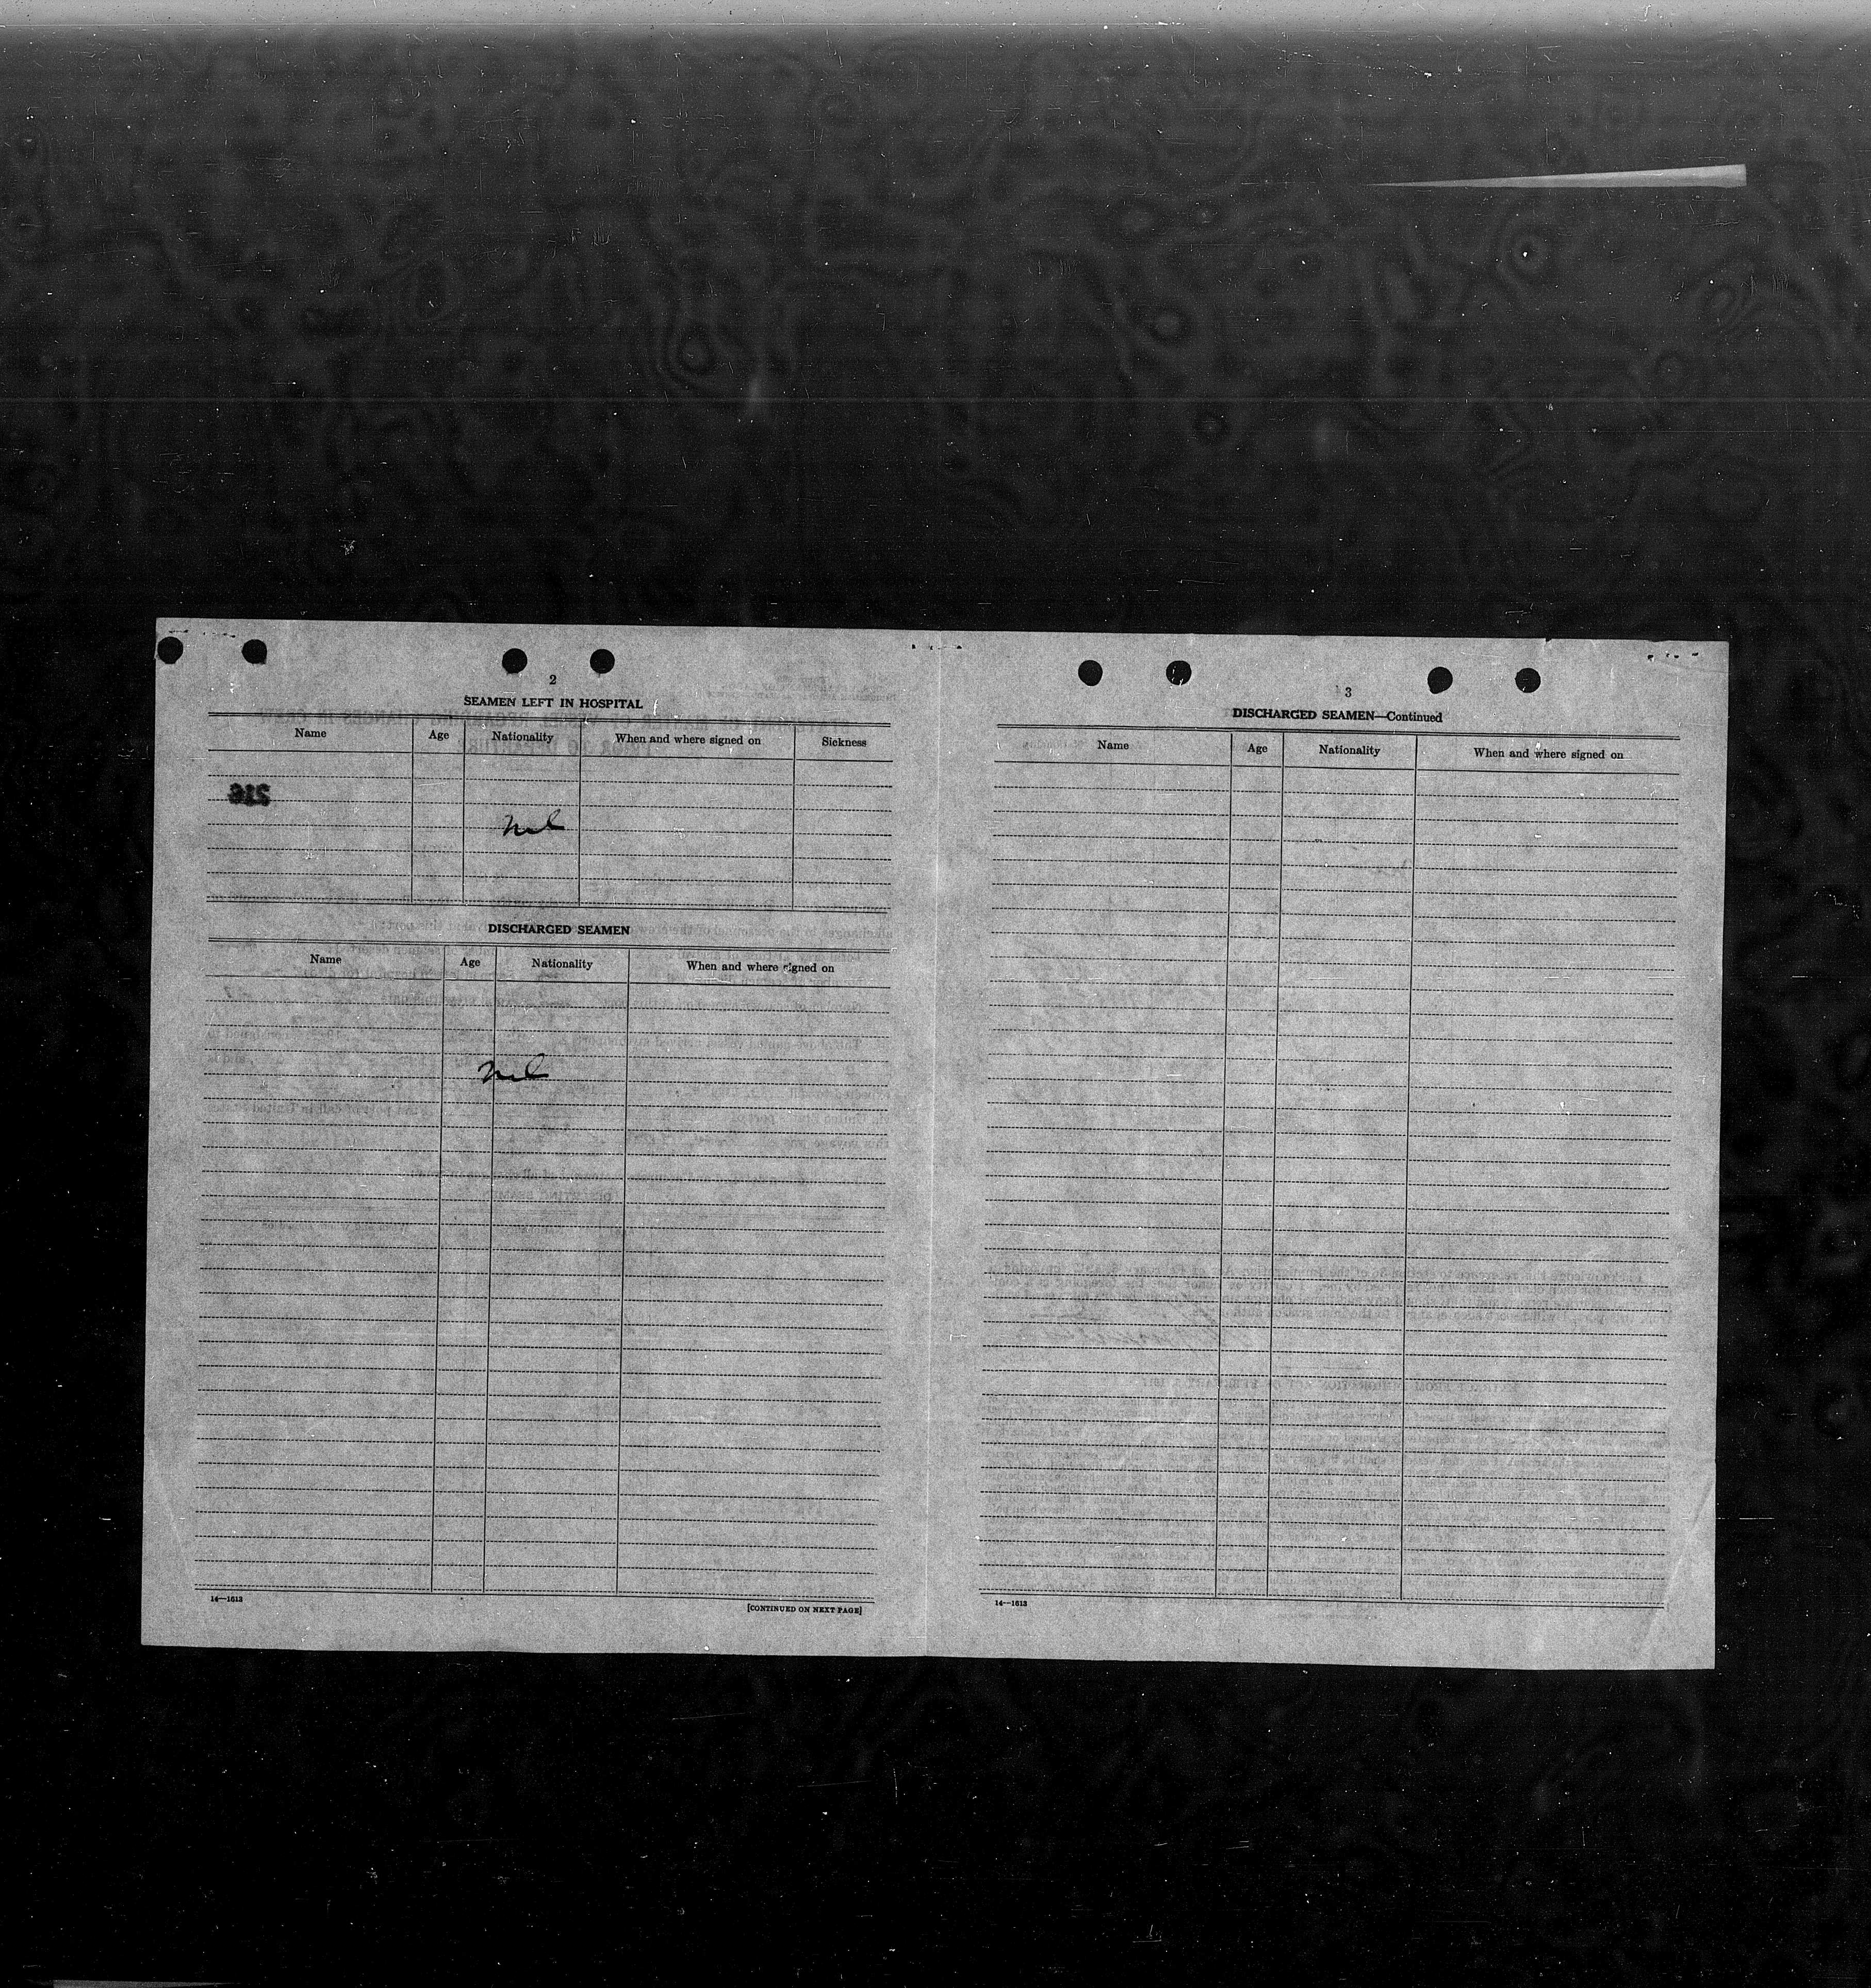 2
SEAMEN LEFT IN HOSPITAL
Name Age Nationality When and where signed on Sickness
216
Nil
DISCHARGED SEAMEN
Name Age Nationality When and where signed on
Nil
14—1613
[CONTINUED ON NEXT PAGE]
3
DISCHARGED SEAMEN—Continued
Name Age Nationality When and where signed on
14—1613